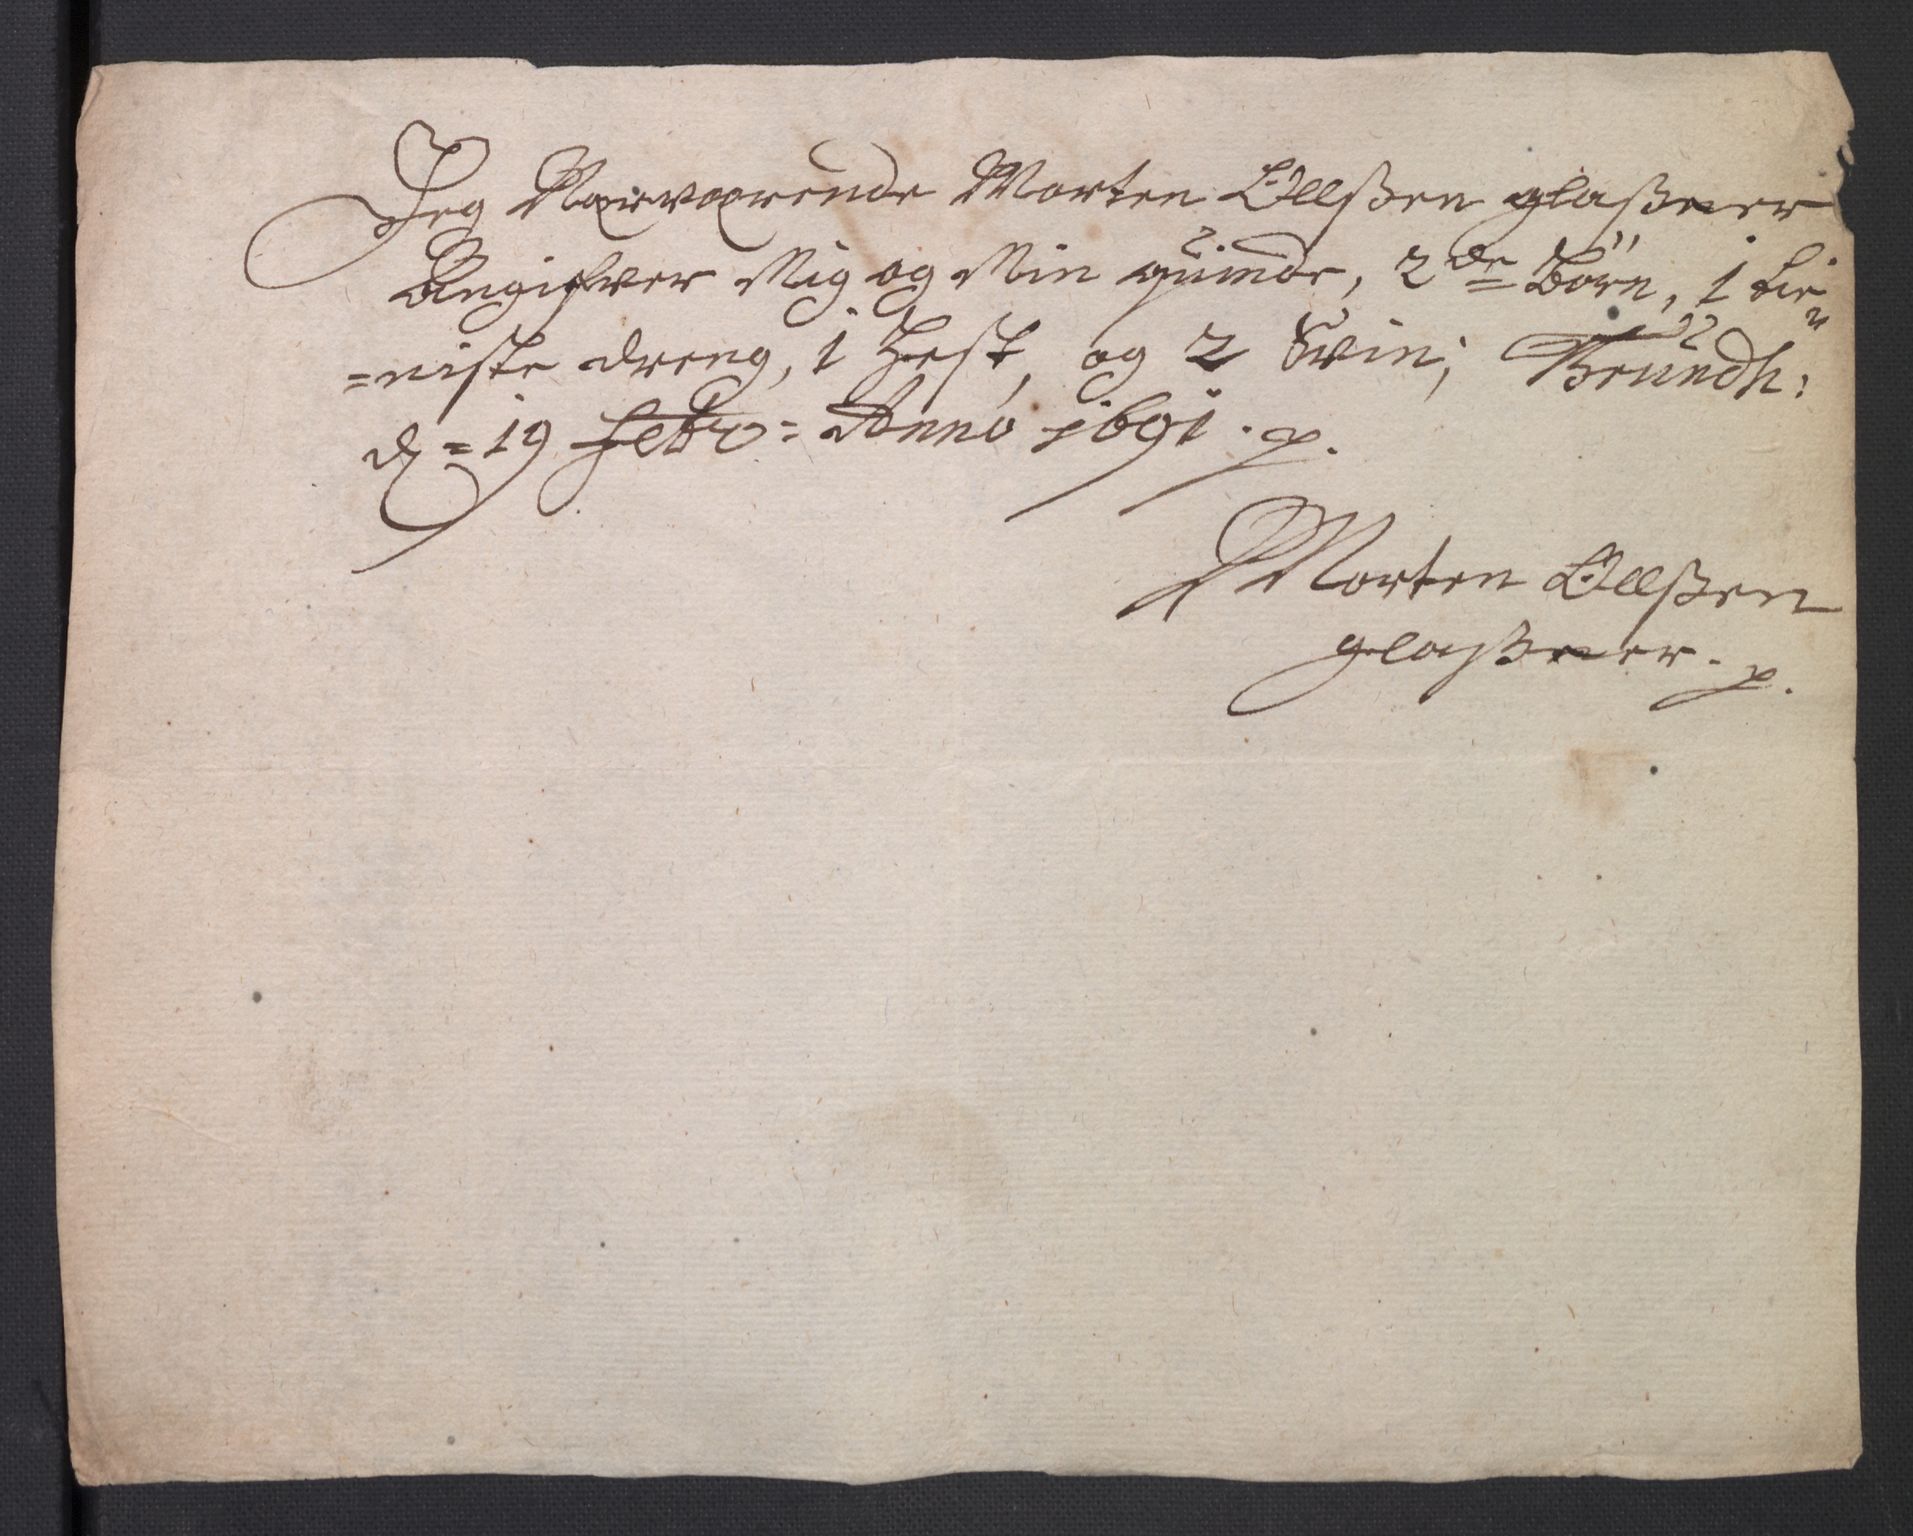 Jeg Nærværende Morten Ollßen glaßmer
Angifver Mig og Min quinde, 2de börn, 1 tie
=niste dreng, 1 Hest, og 2 Svin; Tründh:
d = 19 Febr = Anno 1691. p.
Morten Ollßen
glaßmer. p.